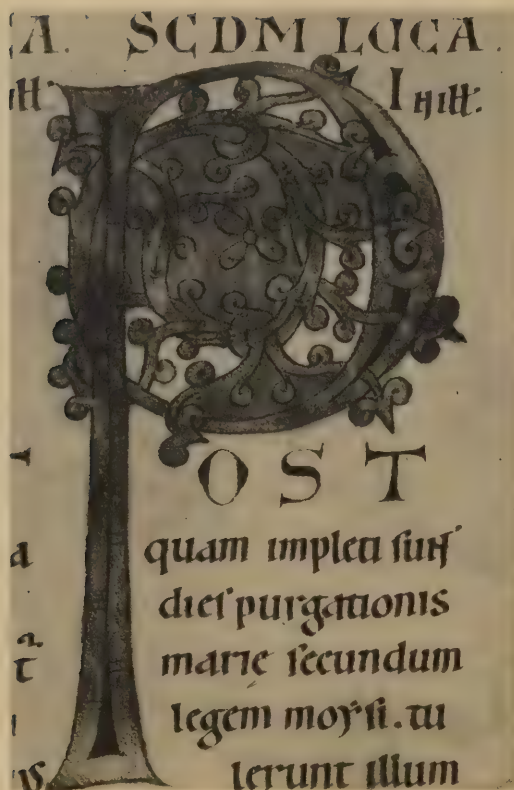 A. SCDM LUCA.
In illᷓ:
POST
quam impleti sunt
dies purgationis
marię secundum
legem moysi. tu
lerunt illum